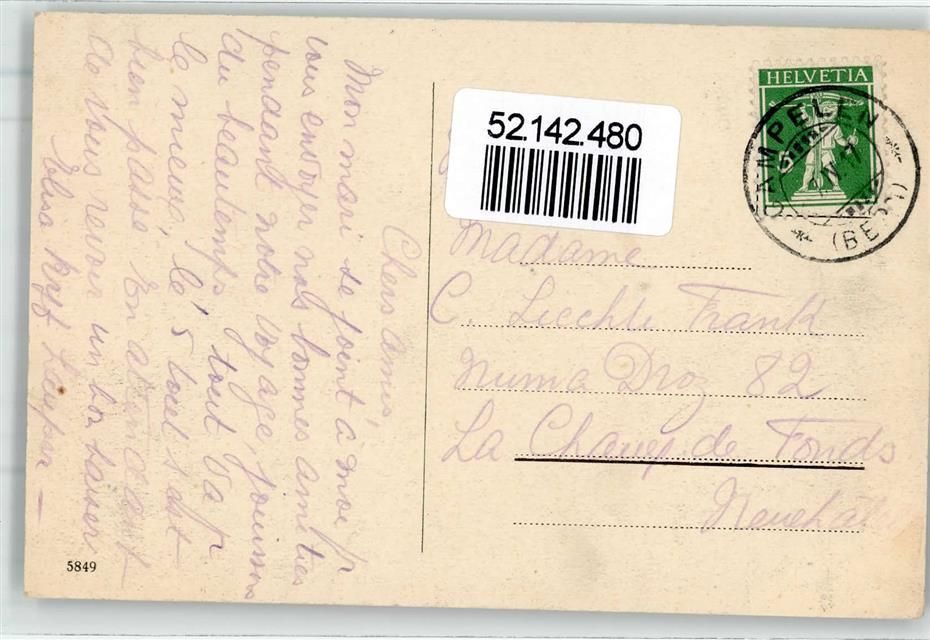 Chers amis,
Mon mari se joint à moi p
vous envoyer nos bonnes amitiés
pendant notre voyage, jouissons
du beau temps, tout va p
le mieux, le 5 tout s'est
bien passé. En attendant
de vous revoir un bon baiser
Elisa
52.142.480
HELVETIA
GAMPELEN
(BERN)
Madame
C. Liechti Frank
Numa Droz 82
La Chaux de Fonds
Neuchâtel
5849